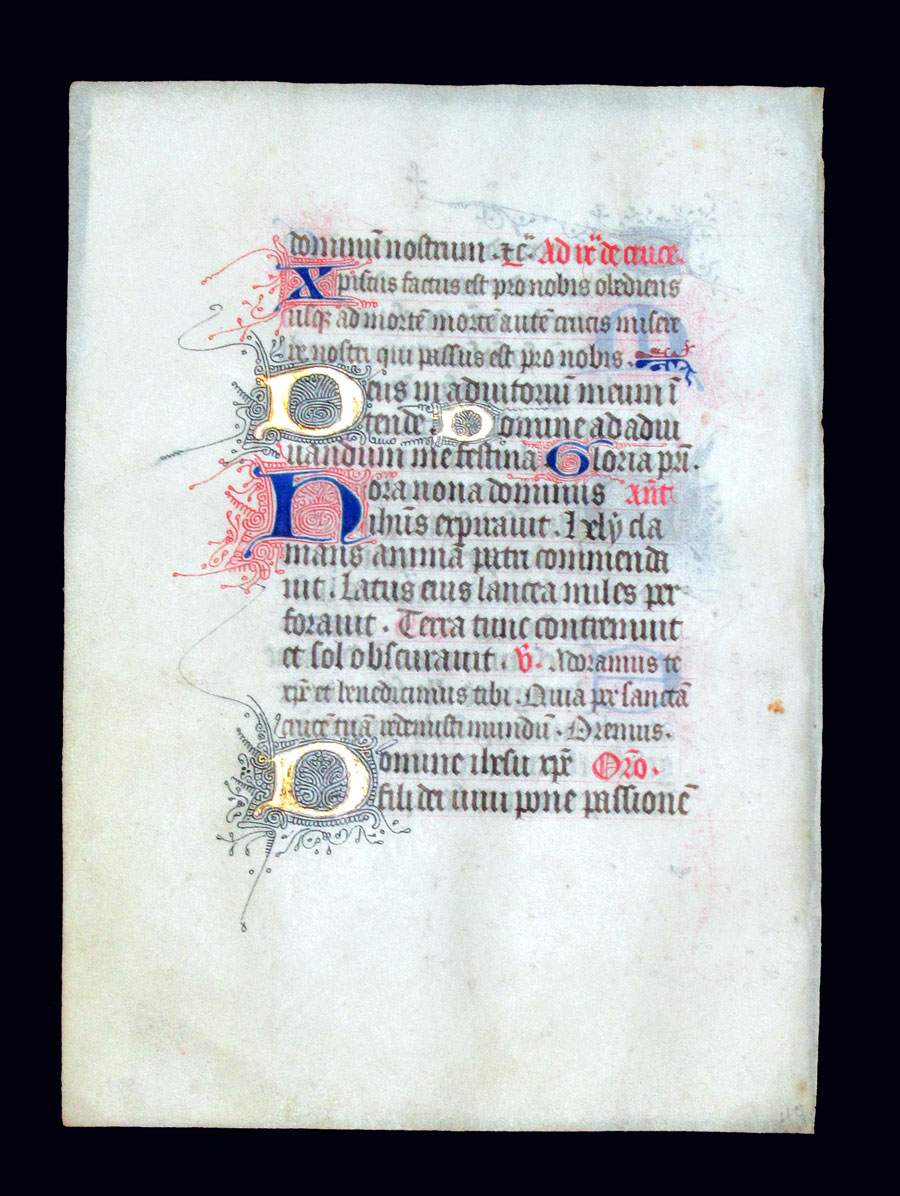 dominū nostrum · ⁊cͣ. Ad ixͣ de cruce.
Xpistus factus est pro nobis obediens
usqꝫ ad mortē mortē autē crucis misere
re nostri qui passus est pro nobis .
Deus in adiutoriū meum ī
tende . Domine ad adiu
uandum me festina Gloria pr̄i.
Hora nona dominus Ant̄
ihūs expirauit . Hely cla
mans animā patri commenda
uit . Latus eius lancea miles per
forauit . Terra tunc contremuit
et sol obscurauit . V̄. Adoramus te
xpe et benedicimus tibi . Quia per sanctā
crucē tuā redemisti mundū . Oremus .
Domine ihesu xp̄e Or̄o .
fili dei uiui pone passionē